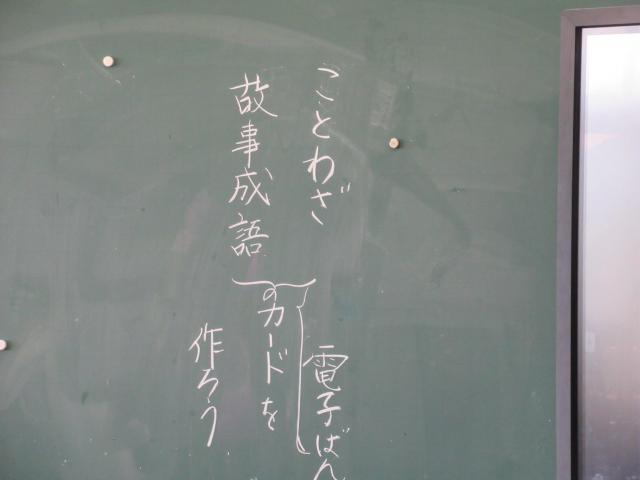 ことわざ
故事成語
のカードを
電子ばん
作ろう